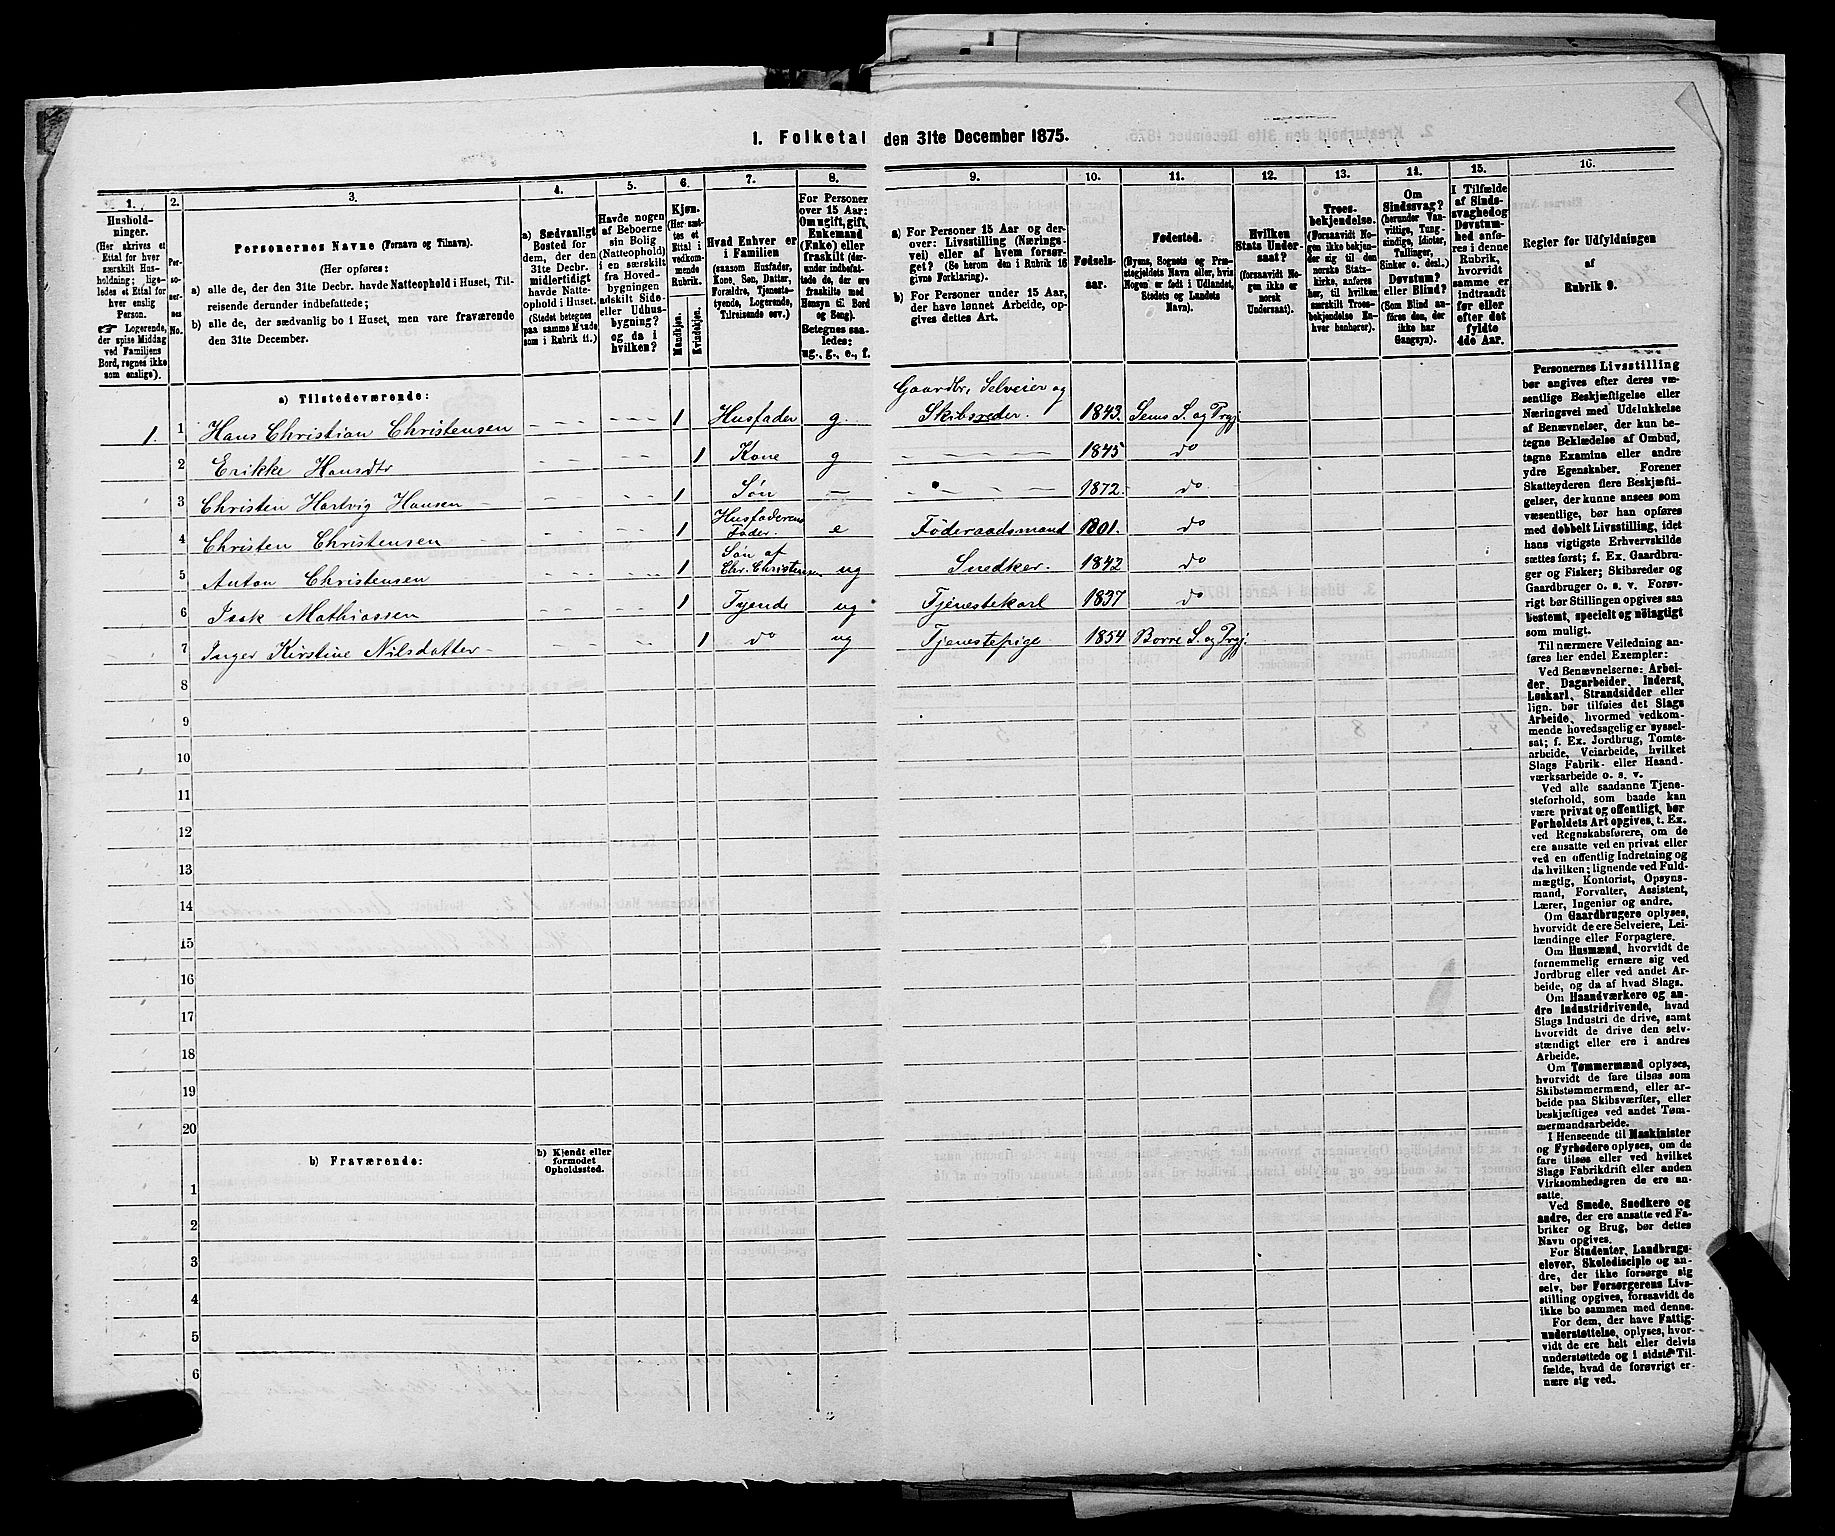 1. Folketal den 31te December 1875.
1.
Hushold-
ninger.
(Her skrives et
Ettal for hver
særskilt Hus-
holdning; lige-
ledes et Ettal for
hver enslig
Person.
☞ Logerende,
der spise Middag
ved Familiens
Bord, regnes ikke
som enslige).
2.
Per-
so-
ner-
nes
No.
3.
Personernes Navne (Fornavn og Tilnavn).
(Her opføres:
a) alle de, der den 31te Decbr. havde Natteophold i Huset, Til-
reisende derunder indbefattede;
b) alle de, der sædvanlig bo i Huset, men vare fraværende
den 31te December.
4.
a) Sædvanligt
Bosted for
dem, der den
31te Decbr.
midlertidigt
havde Natte-
ophold i Huset.
(Stedet betegnes
paa samme Maade
som i Rubrik 11.)
5.
Havde nogen
af Beboerne
sin Bolig
(Natteophold)
i en særskilt
fra Hoved-
bygningen
adskilt Side-
eller Udhus-
bygning?
og da i
hvilken?
6.
Kjøn.
(Her sæt-
tes et
Ettal i
vedkom-
mende
Rubrik.
Mandkjøn.
Kvindekjøn.
7.
Hvad Enhver er
i Familien
(saasom Husfader,
Kone, Søn, Datter,
Forældre, Tjeneste-
tyende, Logerende,
Tilreisende osv.)
8.
For Personer
over 15 Aar:
Om ugift, gift,
Enkemand
(Enke) eller
fraskilt (der-
under indbefat-
tede de, der ere
fraskilte med
Hensyn til Bord
og Seng).
Betegnes saa-
ledes:
ug., g., e., f.
9.
a) For Personer 15 Aar og der-
over: Livsstilling (Nærings-
vei) eller af hvem forsør-
get? (Se herom den i Rubrik 16
givne Forklaring).
b) For Personer under 15 Aar,
der have lønnet Arbeide, op-
gives dettes Art.
10.
Fødsels-
aar.
11.
Fødested.
(Byens, Sognets og Præ-
stegjeldets Navn eller, hvis
Nogen er født i Udlandet,
Stedets og Landets
Navn).
12.
Hvilken
Stats Under-
saat?
(forsaavidt No-
gen ikke er
norsk
Undersaat).
13.
Troes-
bekjendelse.
(Forsaavidt No-
gen ikke bekjen-
der sig til den
norske Stats-
kirke, anføres
her, til hvilken
særskilt Troes-
bekjendelse En-
hver henhører).
14.
Om
Sindssvag?
(herunder Van-
vittige, Tung-
sindige, Idioter,
Tullinger,
Sinker o. desl.)
Døvstum?
eller Blind?
(Som Blind an-
føres den, der
ikke har
Gangsyn).
15.
I Tilfælde
af Sinds-
svaghed og
Døvstum-
hed anfø-
res i denne
Rubrik,
hvorvidt
samme er
indtraadt
før eller
efter det
fyldte
4de Aar.
16.
Regler før Udfyldningen
af
Rubrik 9.
a) Tilstedeværende:
1. 1 Hans Christian Christensen - - - - - - 1 Husfader g. Gaardbr, Selveier og
Skibsreder. 1843. Sems S. og Prgj.
2 Erikke Hansdtr - - - - - - 1 Kone g - - - - - - 1845 do
3 Christen Hartvig Hansen - - - - - 1 Søn - - - - - - 1872 do.
4 Christen Christensen - - - - - - 1 Husfaderens
Fader. e Föderaadsmand 1801. do
5 Anton Christensen - - - - - - 1 Søn af
Chr. Christensen ug Snedker. 1842 do
6 Isak Mathiassen - - - - - - 1 Tyende ug Tjenestekarl 1837 do
7 Inger Kirstine Nilsdatter - - - - - 1 do ug Tjenestepige. 1854 Borre S. og Prgj.
8
9
10
11
12
13
14
15
16
17
18
19
20
b) Fraværende:
b) Kjendt eller
formodet
Opholdssted.
1
2
3
4
5
6
Personernes Livsstilling
bør angives efter deres væ-
sentlige Beskjæftigelse eller
Næringsvei med Udelukkelse
af Benævnelser, der kun be-
tegne Beklædelse af Ombud,
tagne Examina eller andre
ydre Egenskaber. Forener
Skatteyderen flere Beskjæfti-
gelser, der kunne ansees som
væsentlige, bør han opføres
med dobbelt Livsstilling, idet
hans vigtigste Erhvervskilde
sættes først; f. Ex. Gaardbru-
ger og Fisker; Skibsreder og
Gaardbruger o. s. v. Forøv-
rigt bør Stillingen opgives saa
bestemt, specielt og nøiagtigt
som muligt.
Til nærmere Veiledning an-
føres her endel Exempler:
Ved Benævnelserne: Arbei-
der, Dagarbeider, Inderst,
Løskarl, Strandsidder eller
lign. bør tilføies det Slags
Arbeide, hvormed vedkom-
mende hovedsagelig er syssel-
sat; f. Ex. Jordbrug, Tomte-
arbeide, Veiarbeide, hvilket
Slags Fabrik- eller Haand-
værksarbeide o. s. v.
Ved alle saadanne Tjene-
steforhold, som baade kan
være privat og offentligt, bør
Forholdets Art opgives, t. Ex.
ved Regnskabsførere, om de
ere ansatte ved en privat eller
ved en offentlig Indretning og
da hvilken; lignende ved Fuld-
mægtig, Kontorist, Opsyns-
mand, Forvalter, Assistent,
Lærer, Ingeniør og andre.
Om Gaardbrugere oplyses,
hvorvidt de ere Selveiere, Lei-
lændinge eller Forpagtere.
Om Husmænd, hvorvidt de
fornemmelig ernære sig ved
Jordbrug eller ved andet Ar-
beide, og da af hvad Slags.
Om Haandværkere og an-
dre Industridrivende, hvad
Slags Industri de drive, samt
hvorvidt de drive den selv-
stændigt eller ere i andres
Arbeide.
Om Tømmermænd oplyses,
hvorvidt de fare tilsøs som
Skibstømmermænd, eller ar-
beide paa Skibsværfter, eller
beskjæftiges ved andet Tøm-
mermandsarbeide.
I Henseende til Maskinister
og Fyrbødere oplyses, om de
fare tilsøs eller ved hvilket
Slags Fabrikdrift eller anden
Virksomhedsgren de ere an-
satte.
Ved Smede, Snedkere og
andre, der ere ansatte ved Fa-
briker og Brug, bør dettes
Navn opgives.
For Studenter, Landbrugs-
elever, Skoledisciple og an-
dre, der ikke forsørge sig
selv, bør Forsørgerens Livs-
stilling opgives, forsaavidt de
ikke bo sammen med denne.
For dem, der have Fattig-
understøttelse, oplyses, hvor-
vidt de ere helt eller delvis
understøttede og i sidste Til-
fælde, hvad de forøvrigt er-
nære sig ved.